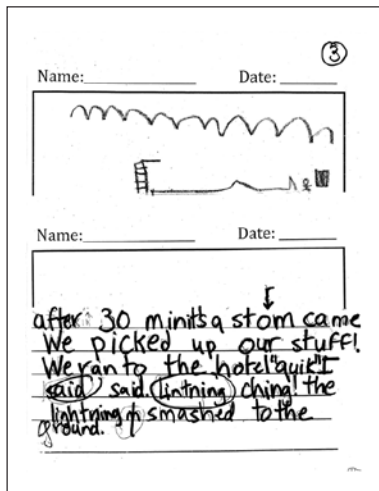 3
Name: Date:
Name: Date:
r
after 30 minits a stom came
We picked up our stuff!
We ran to the hotel "quik" I
said said. lintning ching! the
lightning smashed to the
ground.